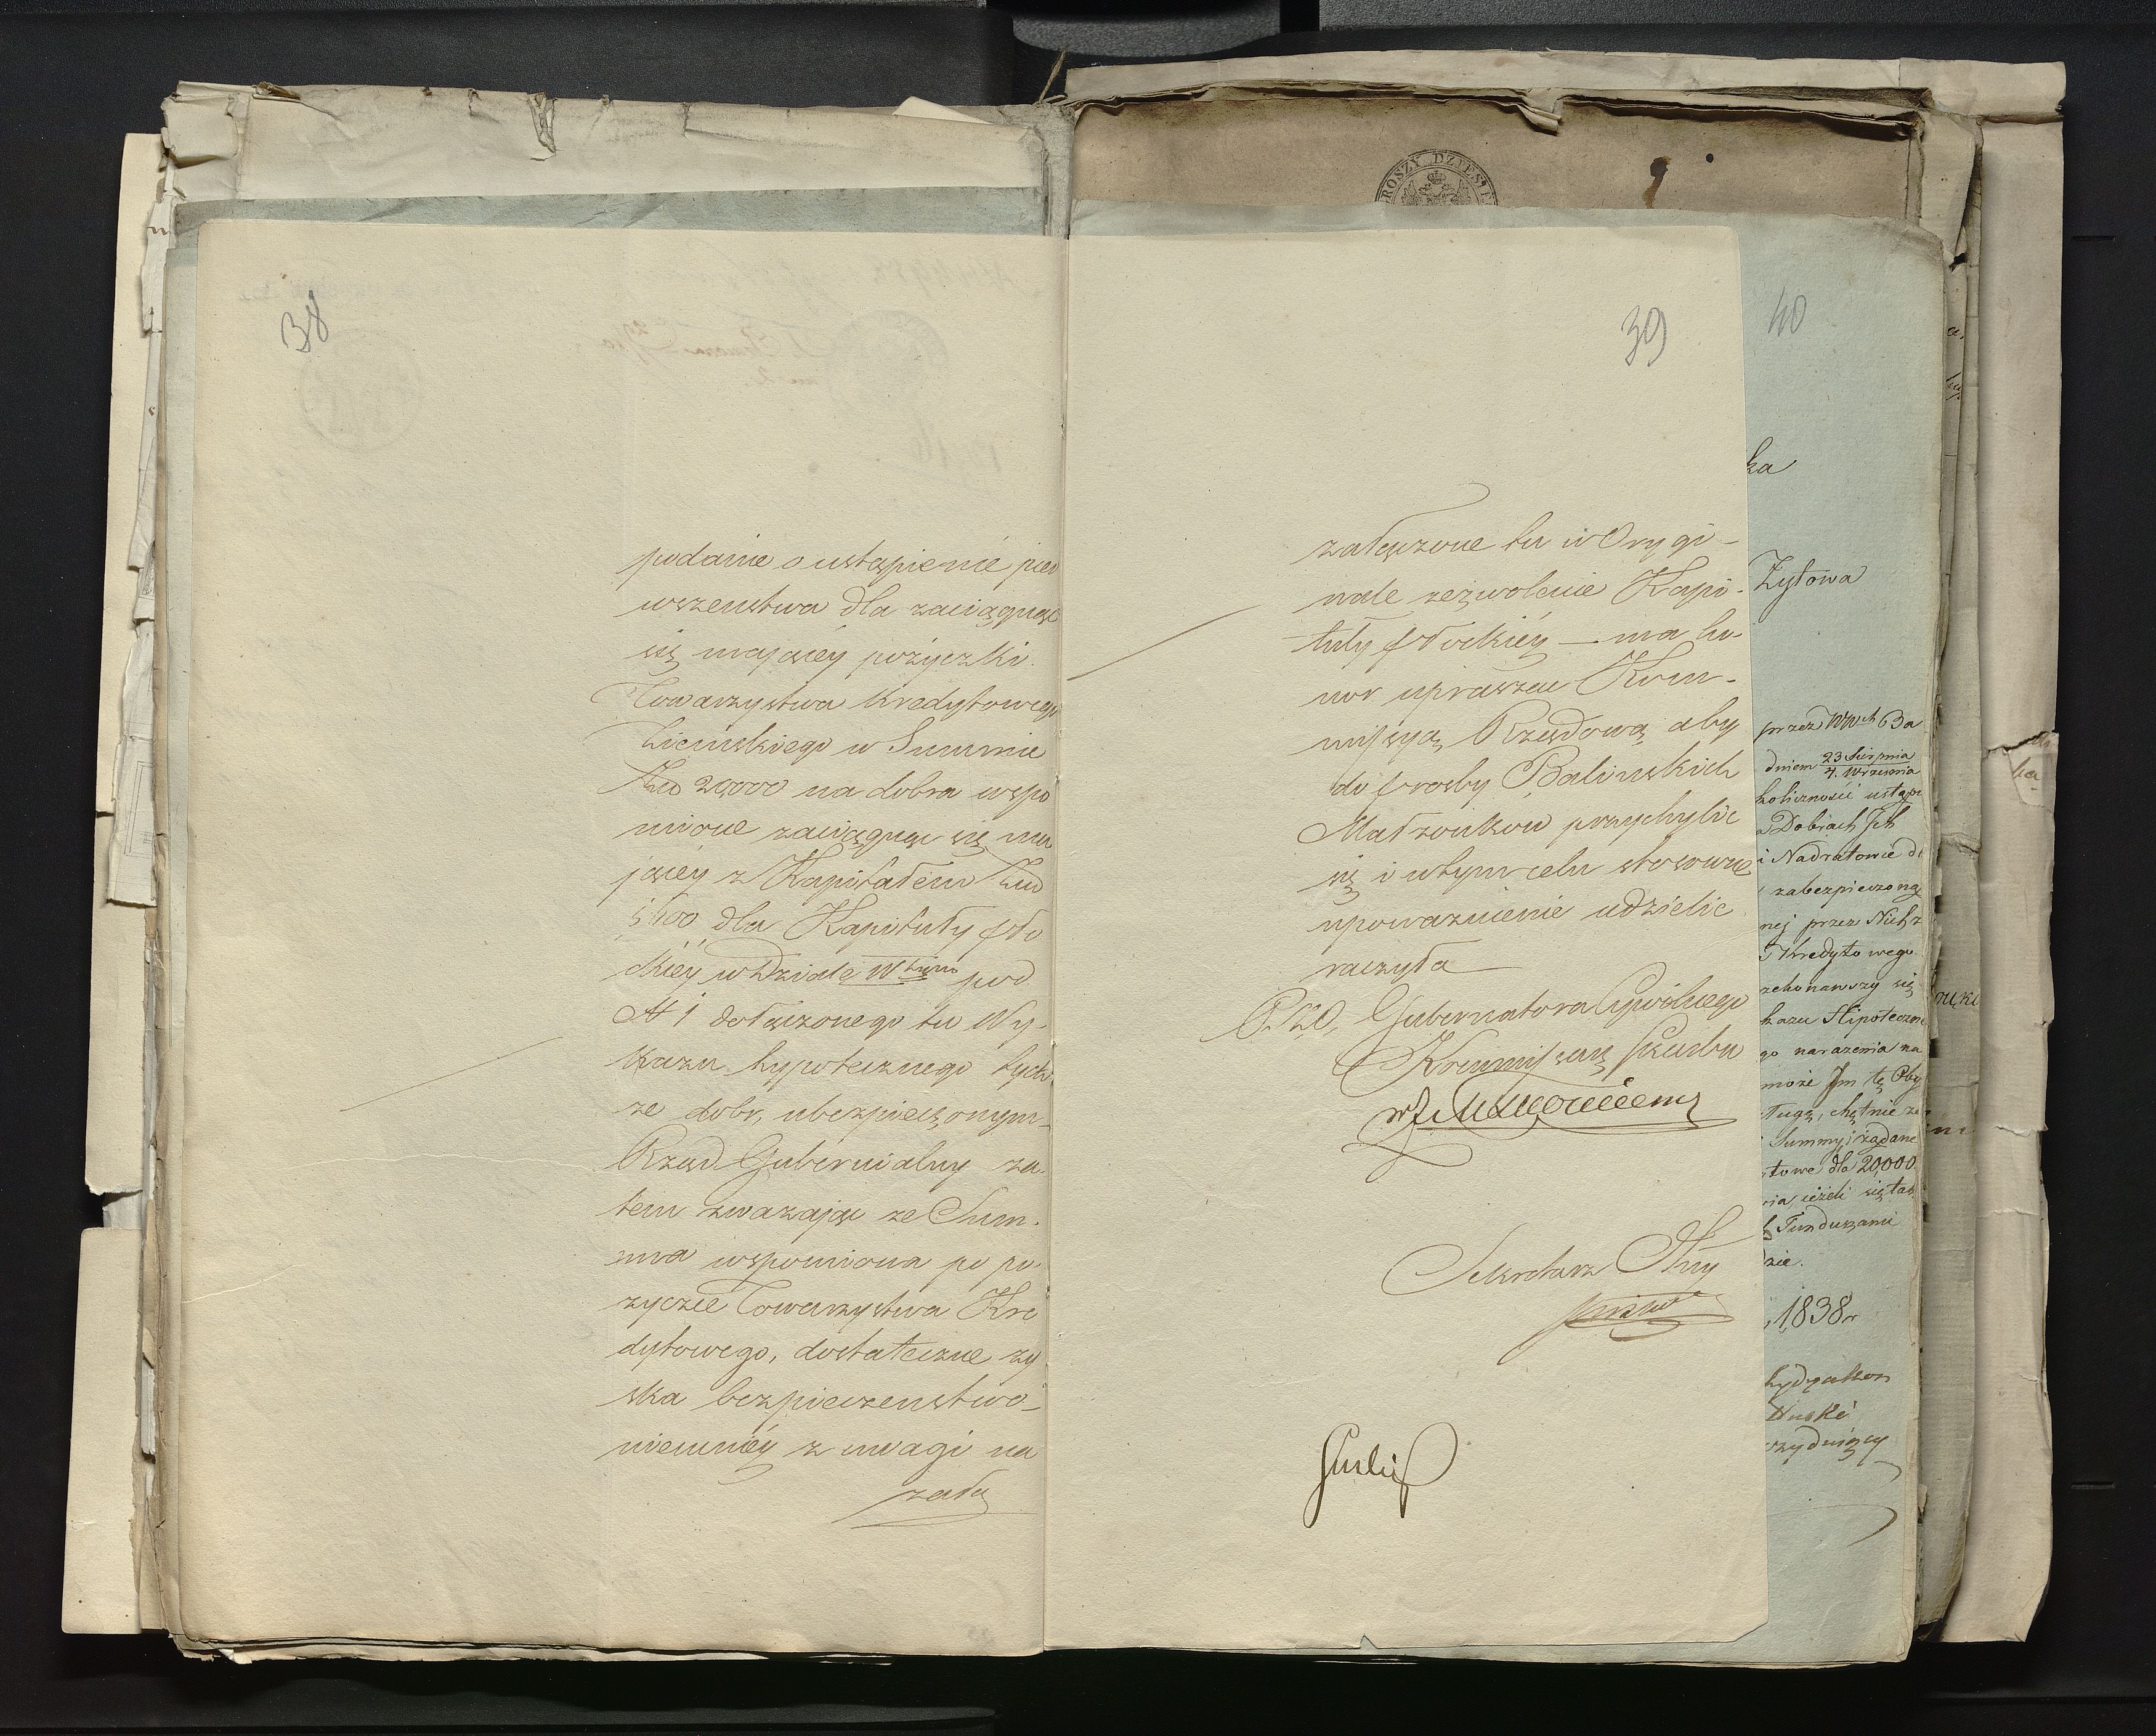 38
podanie o ustąpienie pier
wszenstwa dla zaciągnąć
się maiącéy pożyczki
Towarzystwa Kredytowego
Ziemskiego w Summie
20,000 na dobra wspo
mione zaciągnąć się ma
jącéy z Kapitałem
dla Kapituły Pło
ckiéy w Dziale pod
N 1 dołączonego tu Wy-
kazu hypotecznego tych
że dobr, ubezpieczonym-
Rząd Gubernialny za-
tem zwazając ze Sum-
ma wspomiona po po-
zyczce Towarzystwa Kre
dytowego, dostateczne zy
ska bezpieczenstwo-
niemniéy z uwagi na
załą
39
załączone tu w Orygi-
nale zezwolenie Kapi-
tuły Płockiéy - ma ho-
nor upraszac Kom-
missyą Rządową aby
do prosby Balinskich
Małzonkow przychylic
się i w tym celu stosowne
upowaznienie udzielic
raczyła
Gubernatora Cywilnego
Kommissarz Skarbu
Sekretarz
40
ka
Zytowa
przez WWch Ba
dniem 23 Sierpnia
4. Wrzesnia
koliczność ustąpi
Dobrach Ich
i Nadratowie d
zabezpieczoną
nej przez Nich z
Kredytowego
zekonawszy się
kazu Hipoteczne
go narażenia na
może Im tę Oby
ługą, chętnie ze
Summy żądane
towe dla 20,000
nia ieżeli się tak
Funduszami
dzie.
1838r
ROSZY DZIESI